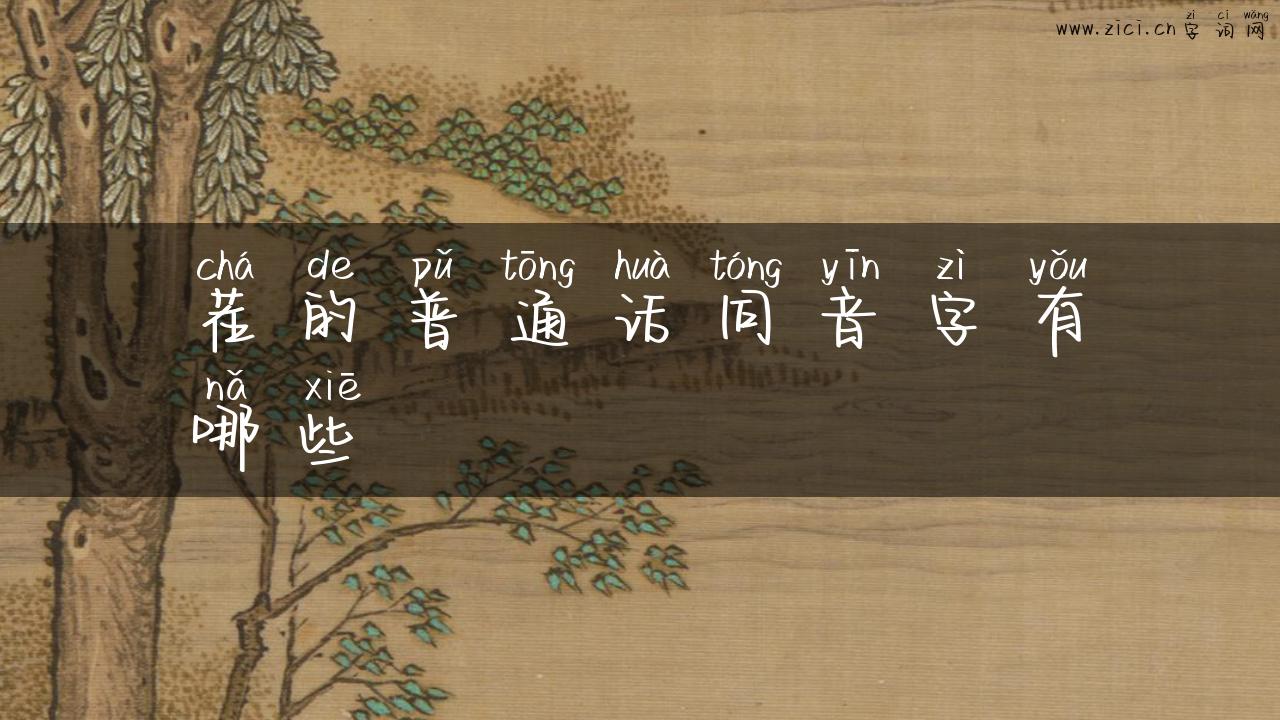 zì cí wǎng
www.zici.cn 字词网
chá de pǔ tōng huà tóng yīn zì yǒu
茬的普通话同音字有
nǎ xiē
哪些